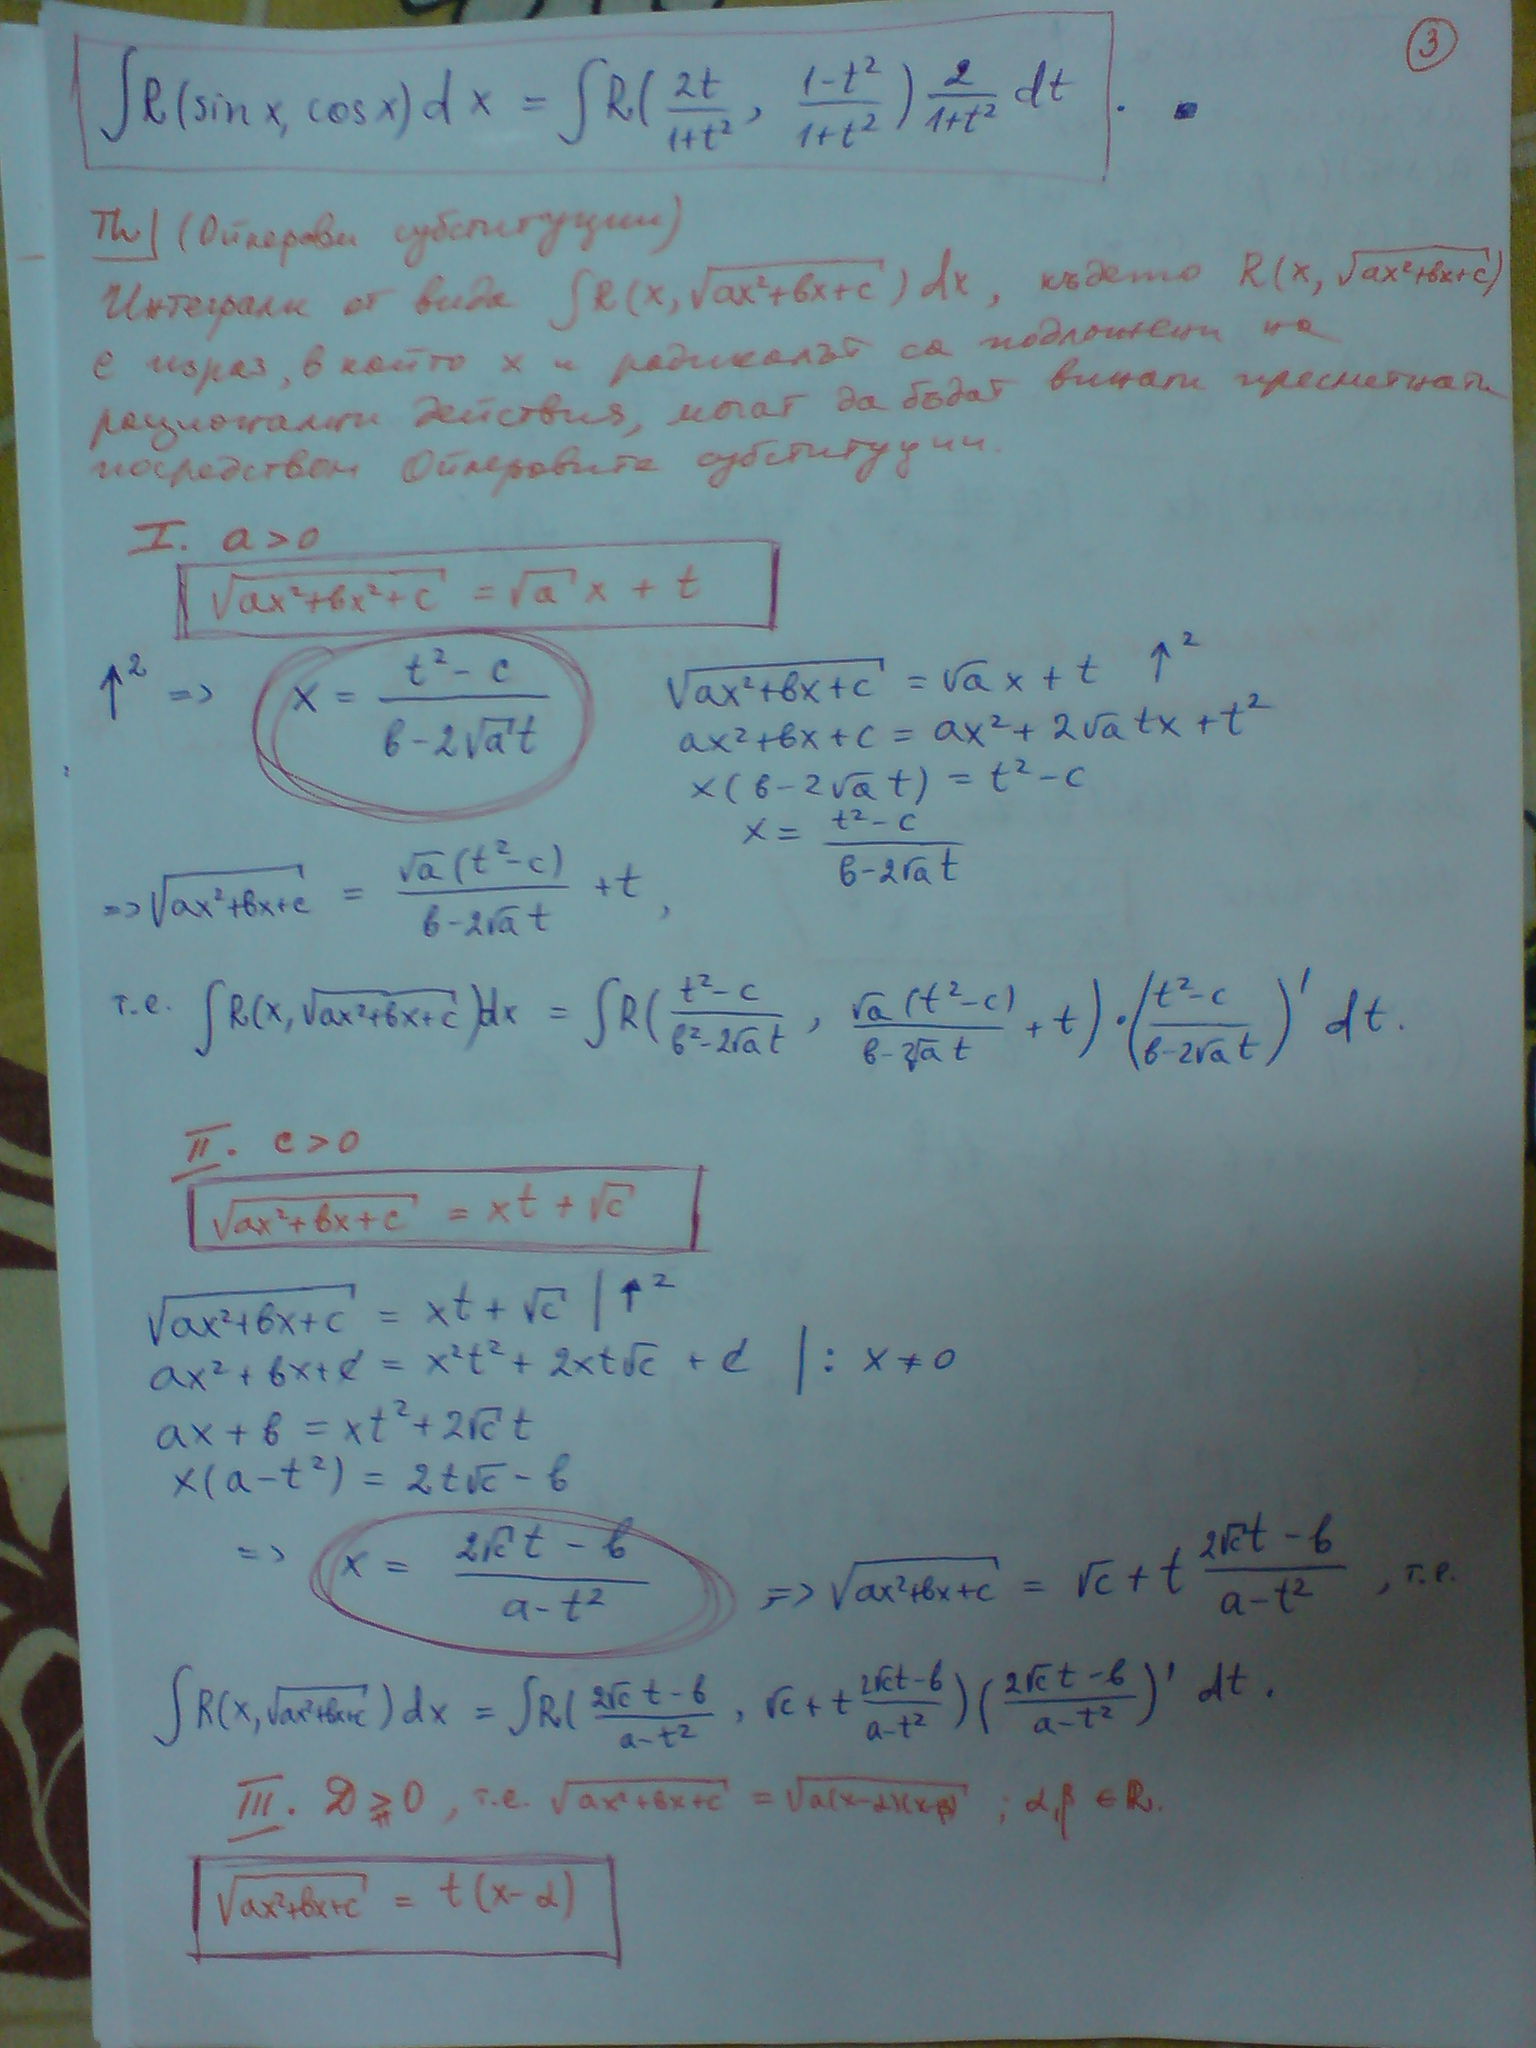 ③
∫R(sin x, cos x) dx = ∫R(2t/(1+t²), (1-t²)/(1+t²)) 2/(1+t²) dt.
Th | (Ойлерови субституции)
Интеграли от вида ∫R(x, √(ax²+вx+c)) dx, където R(x, √(ax²+вx+c))
е израз, в който x и радикалът са подложени на
рационални действия, могат да бъдат винаги пресметнати
посредством Ойлеровите субституции.
I. a>0
√(ax²+вx²+c) = √a x + t
↑² => x = (t²-c)/(в-2√a t)
√(ax²+вx+c) = √a x + t ↑²
ax²+вx+c = ax²+2√a tx+t²
x(в-2√a t) = t²-c
x = (t²-c)/(в-2√a t)
=> √(ax²+вx+c) = √a(t²-c)/(в-2√a t) + t,
т.е. ∫R(x, √(ax²+вx+c))dx = ∫R((t²-c)/(в²-2√a t), √a(t²-c)/(в-2√a t) + t)·((t²-c)/(в-2√a t))' dt.
II. c>0
√(ax²+вx+c) = xt + √c
√(ax²+вx+c) = xt + √c |↑²
ax²+вx+c = x²t²+2xt√c + c |: x≠0
ax+в = xt²+2√c t
x(a-t²) = 2t√c - в
=> x = (2√c t - в)/(a-t²) => √(ax²+вx+c) = √c + t (2√c t - в)/(a-t²), т.е.
∫R(x, √(ax²+вx+c)) dx = ∫R((2√c t - в)/(a-t²), √c + t (2√c t - в)/(a-t²)) ((2√c t - в)/(a-t²))' dt.
III. D≥0, т.е. √(ax²+вx+c) = √(a(x-α)(x-β)); α,β ∈ R.
√(ax²+вx+c) = t(x-α)